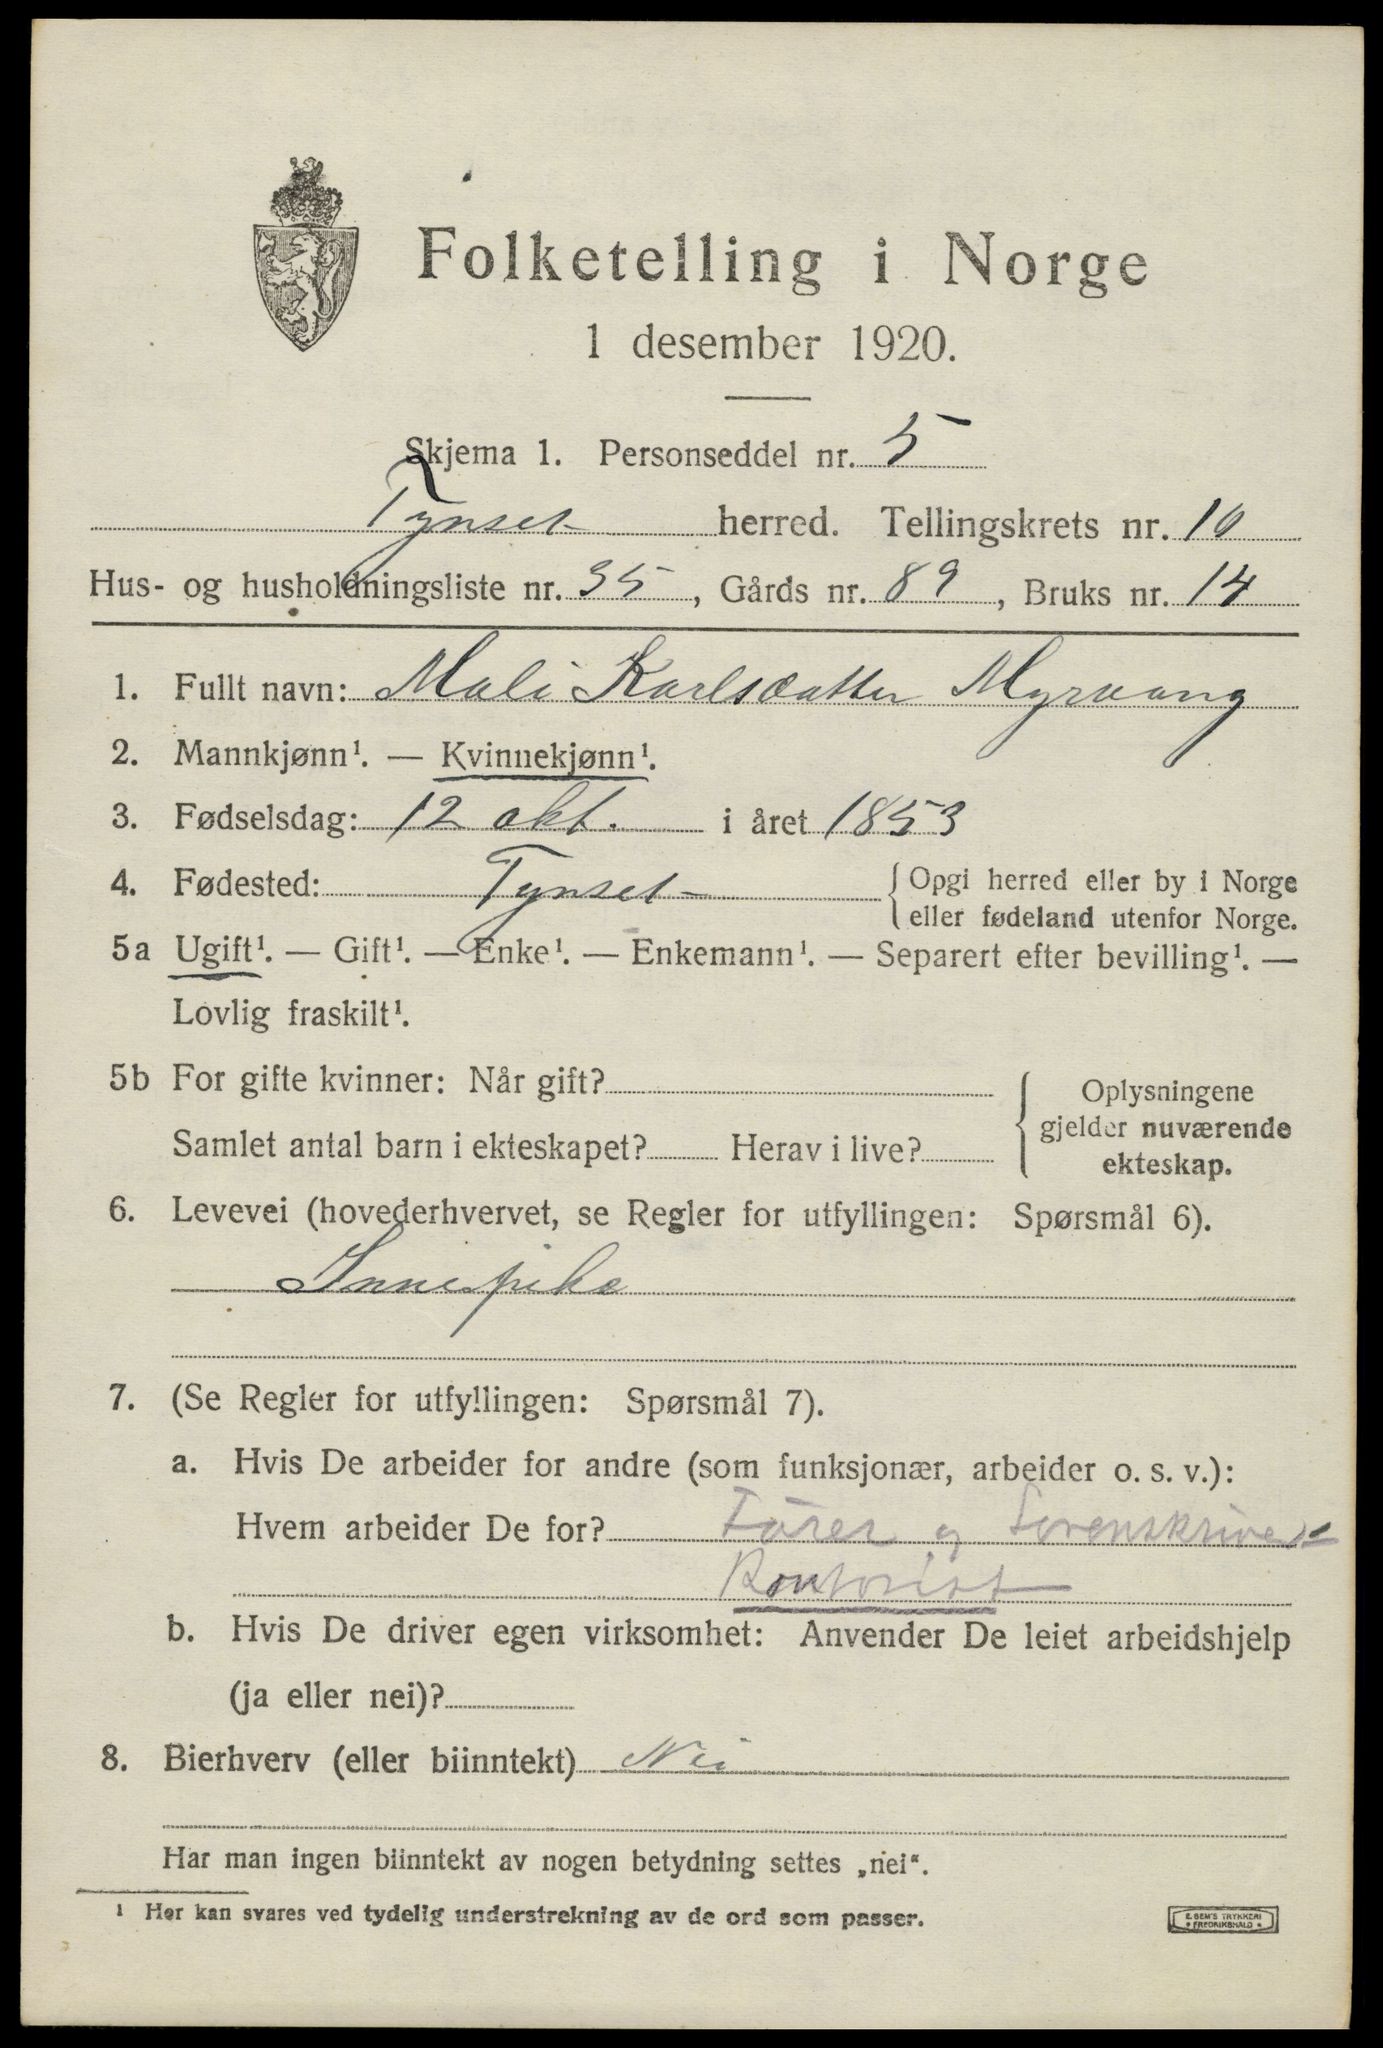 Folketelling i Norge
1 desember 1920.
Skjema 1. Personseddel nr. 5
Tynset herred. Tellingskrets nr. 10
Hus- og husholdningsliste nr. 35, Gårds nr. 89, Bruks nr. 14
1. Fullt navn: Mali Karlsdatter Myrvang
2. Mannkjønn¹. — Kvinnekjønn¹.
3. Fødselsdag: 12 okt. i året 1853
4. Fødested: Tynset { Opgi herred eller by i Norge
eller fødeland utenfor Norge.
5a Ugift¹. — Gift¹. — Enke¹. — Enkemann¹. — Separert efter bevilling¹. —
Lovlig fraskilt¹.
5b For gifte kvinner: Når gift?
Samlet antal barn i ekteskapet? Herav i live?
{ Oplysningene
gjelder nuværende
ekteskap.
6. Levevei (hovederhvervet, se Regler for utfyllingen: Spørsmål 6).
Innepike
7. (Se Regler for utfyllingen: Spørsmål 7).
a. Hvis De arbeider for andre (som funksjonær, arbeider o. s. v.):
Hvem arbeider De for? og Sorenskriver
Kontorist
b. Hvis De driver egen virksomhet: Anvender De leiet arbeidshjelp
(ja eller nei)?
8. Bierhverv (eller biinntekt) Nei
Har man ingen biinntekt av nogen betydning settes „nei“.
¹ Her kan svares ved tydelig understrekning av de ord som passer.
E. SEM'S TRYKKERI
• FREDRIKSHALD •